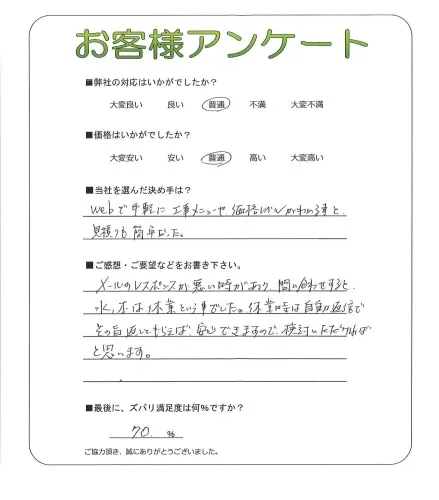 お客様アンケート
■弊社の対応はいかがでしたか?
大変良い 良い 普通 不満 大変不満
■価格はいかがでしたか?
大変安い 安い 普通 高い 大変高い
■当社を選んだ決め手は?
webで手軽に工事メニューや価格がわかる事と
見積りも簡単だった。
■ご感想・ご要望などをお書き下さい。
メールのレスポンスが悪い時があり、問い合わせすると
水、木は休業という事でした。休業時は自動返信で
その旨返してもらえば、安心できますので、検討いただければ
と思います。
■最後に、ズバリ満足度は何%ですか?
70 %
ご協力頂き、誠にありがとうございました。